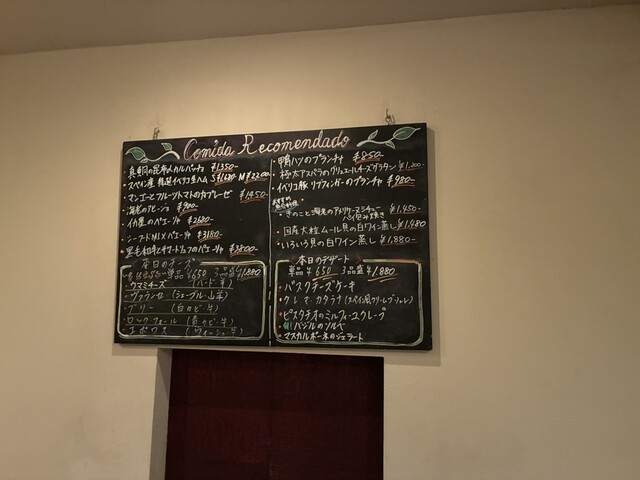 Comida Recomendado
・真鯛の昆布〆カルパッチョ ¥1350-
・スペイン産 特選イベリコ生ハム S¥1680- M¥2200
・マンゴーとフルーツトマトのカプレーゼ ¥1450-
・海老のアヒージョ ¥980-
・イカ墨のパエージャ ¥2680-
・シーフードMIXパエージャ ¥3180-
・黒毛和牛とサマートリュフのパエージャ ¥3800-
本日のチーズ
単品 ¥650 3品盛 ¥1,880
・ウマミチーズ (ハード 羊)
・ヴァランセ (シェーブル・山羊)
・ブリー (白カビ・牛)
・ロックフォール (青カビ・羊)
・エポワス (ウォッシュ・牛)
・鴨ハツのプランチャ ¥850-
・極太アスパラのグリュエールチーズグラタン ¥1,200-
・イベリコ豚リブフィンガーのプランチャ ¥980-
・きのこと海老のアメリケーヌシチュー パイ包み焼き ¥1,450-
・国産大粒ムール貝の白ワイン蒸し ¥1,480
・いろいろ貝の白ワイン蒸し ¥1,880-
本日のデザート
単品 ¥650 3品盛 ¥1,880
・バスクチーズケーキ
・クレマ・カタラナ (スペイン風クリームブリュレ)
・ピスタチオのミルフィーユクレープ
・バジルのソルベ
・マスカルポーネのジェラート